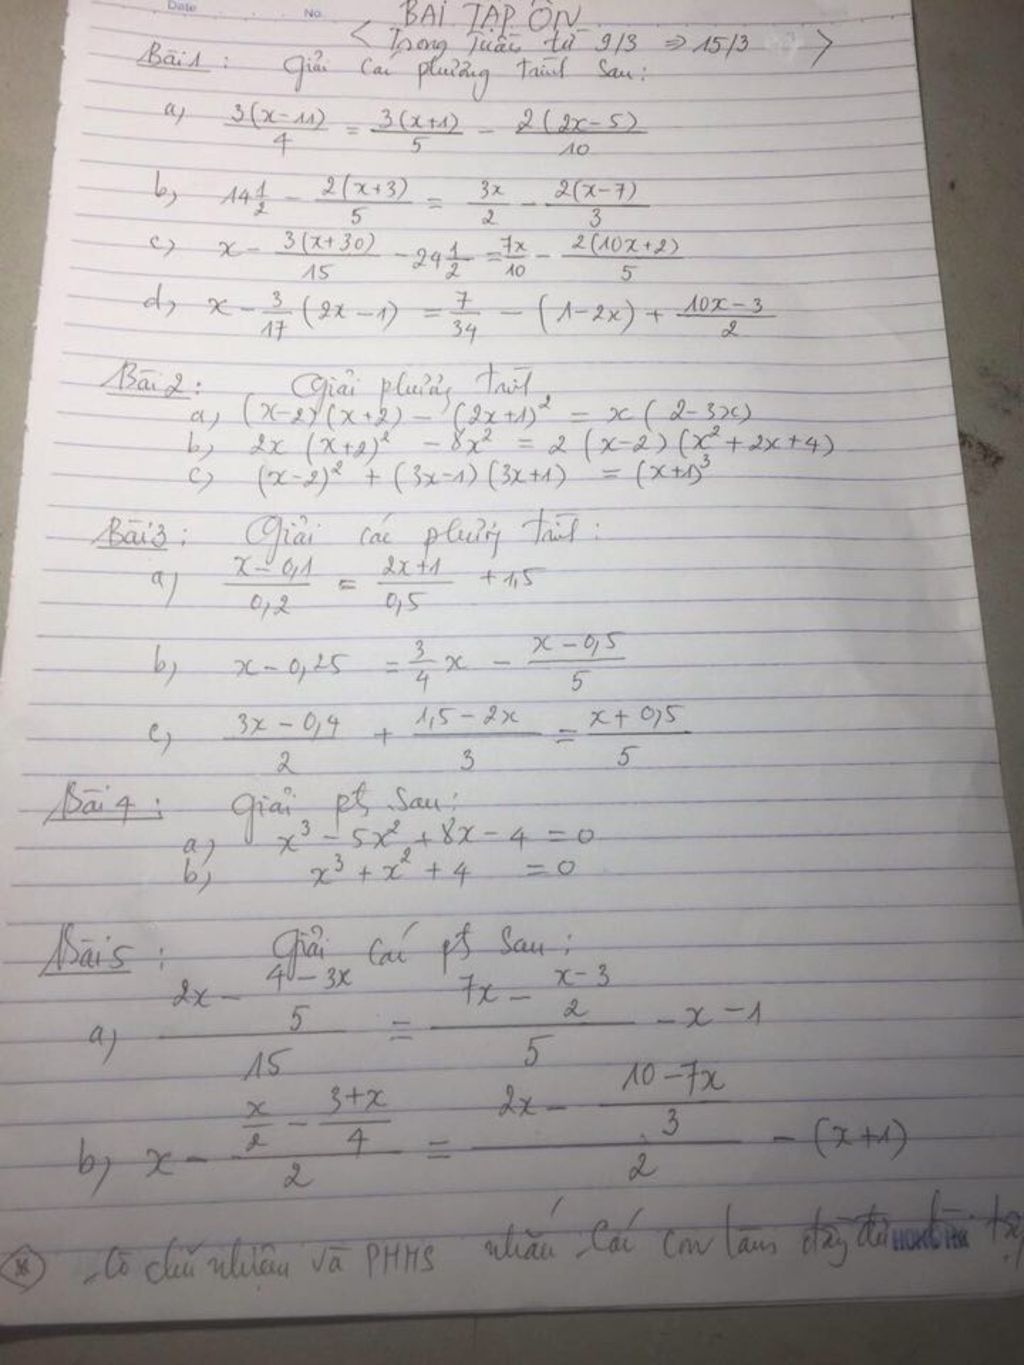 Date No.
BÀI TẬP ÔN
< Trong tuần từ 9/3 ⇒ 15/3 >
Bài 1 : Giải các phương trình sau :
a) 3(x-11)/4 = 3(x+1)/5 - 2(2x-5)/10
b) 14 1/2 - 2(x+3)/5 = 3x/2 - 2(x-7)/3
c) x - 3(x+30)/15 - 24 1/2 = 7x/10 - 2(10x+2)/5
d) x - 3/17 (2x-1) = 7/34 - (1-2x) + (10x-3)/2
Bài 2 : Giải phương trình
a) (x-2)(x+2) - (2x+1)² = x(2-3x)
b) 2x (x+2)² - 8x² = 2 (x-2)(x²+2x+4)
c) (x-2)² + (3x-1)(3x+1) = (x+1)³
Bài 3 : Giải các phương trình :
a) (x-0,1)/0,2 = (2x+1)/0,5 + 1,5
b) x - 0,25 = 3/4 x - (x-0,5)/5
c) (3x-0,4)/2 + (1,5-2x)/3 = (x+0,5)/5
Bài 4 : Giải pt sau :
a) x³ - 5x² + 8x - 4 = 0
b) x³ + x² + 4 = 0
Bài 5 : Giải các pt sau :
a) (2x - (4-3x)/5)/15 = (7x - (x-3)/2)/5 - x - 1
b) x - (x/2 - (3+x)/4)/2 = (2x - (10-7x)/3)/2 - (x+1)
- Cô chủ nhiệm và PHHS nhắc các con làm đầy đủ bài